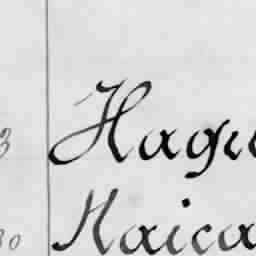 3 Hagu
30 Naica